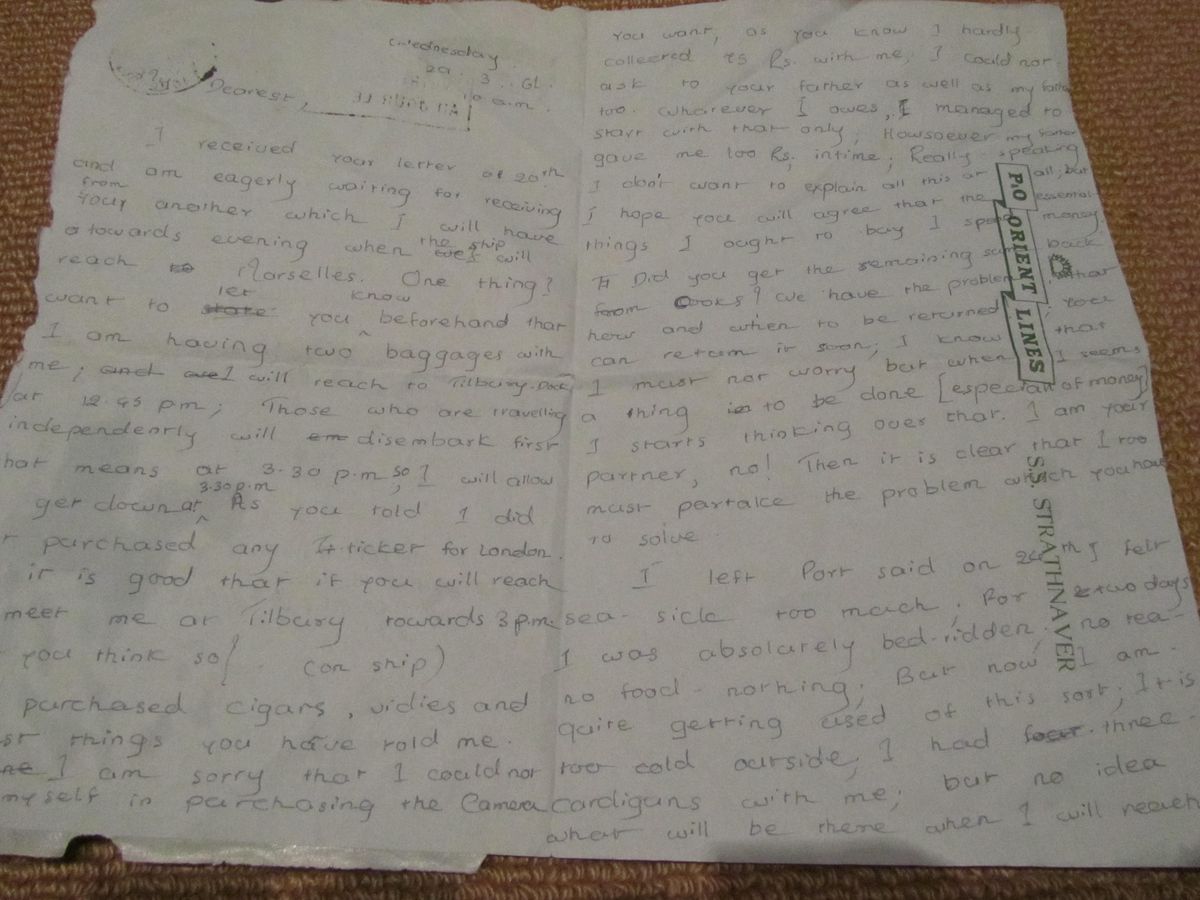 Wednesday
29.3.61.
10 a.m.
Dearest,
I received your letter of 20th
and am eagerly waiting for receiving
from
your another which I will have
towards evening when the ship will
reach Marselles. One thing?
want to state let you know beforehand that
I am having two baggages with
me; and I will reach to Tilbury Dock
at 12.45 pm; Those who are travelling
independently will disembark first
hat means at 3.30 p.m, so I will allow
get down at 3.30 p.m As you told I did
t purchased any ticket for London.
it is good that if you will reach
meet me at Tilbury towards 3 p.m.
you think so! (on ship)
purchased cigars, vidies and
st things you have told me.
I am sorry that I could not
myself in purchasing the Camera
You want, as you know I hardly
collected 75 Rs. with me, I could not
ask to your father as well as my father
too. Whatever I owes, I managed to
start with that only; Howsoever my
gave me 100 Rs. intime; Really speaking
I don't want to explain all this at all; but
I hope you will agree that the essential
things I ought to buy I money.
Did you get the remaining back
from Cooks? We have the problem that
how and when to be returned
can return it soon; I know that
I must not worry but when I seems
a thing is to be done [especial of money]
I starts thinking over that. I am your
partner, no! Then it is clear that I too
must partake the problem which you have
to solve.
I left Port said on 24th I felt
sea-sick too much. For two days
I was absolutely bed-ridden, no tea-
no food - nothing; But now I am
quite getting used of this sort; It is
too cold outside, I had four three
cardigans with me; but no idea
what will be there when I will reach
P.O ORIENT LINES
S.S. STRATHNAVER